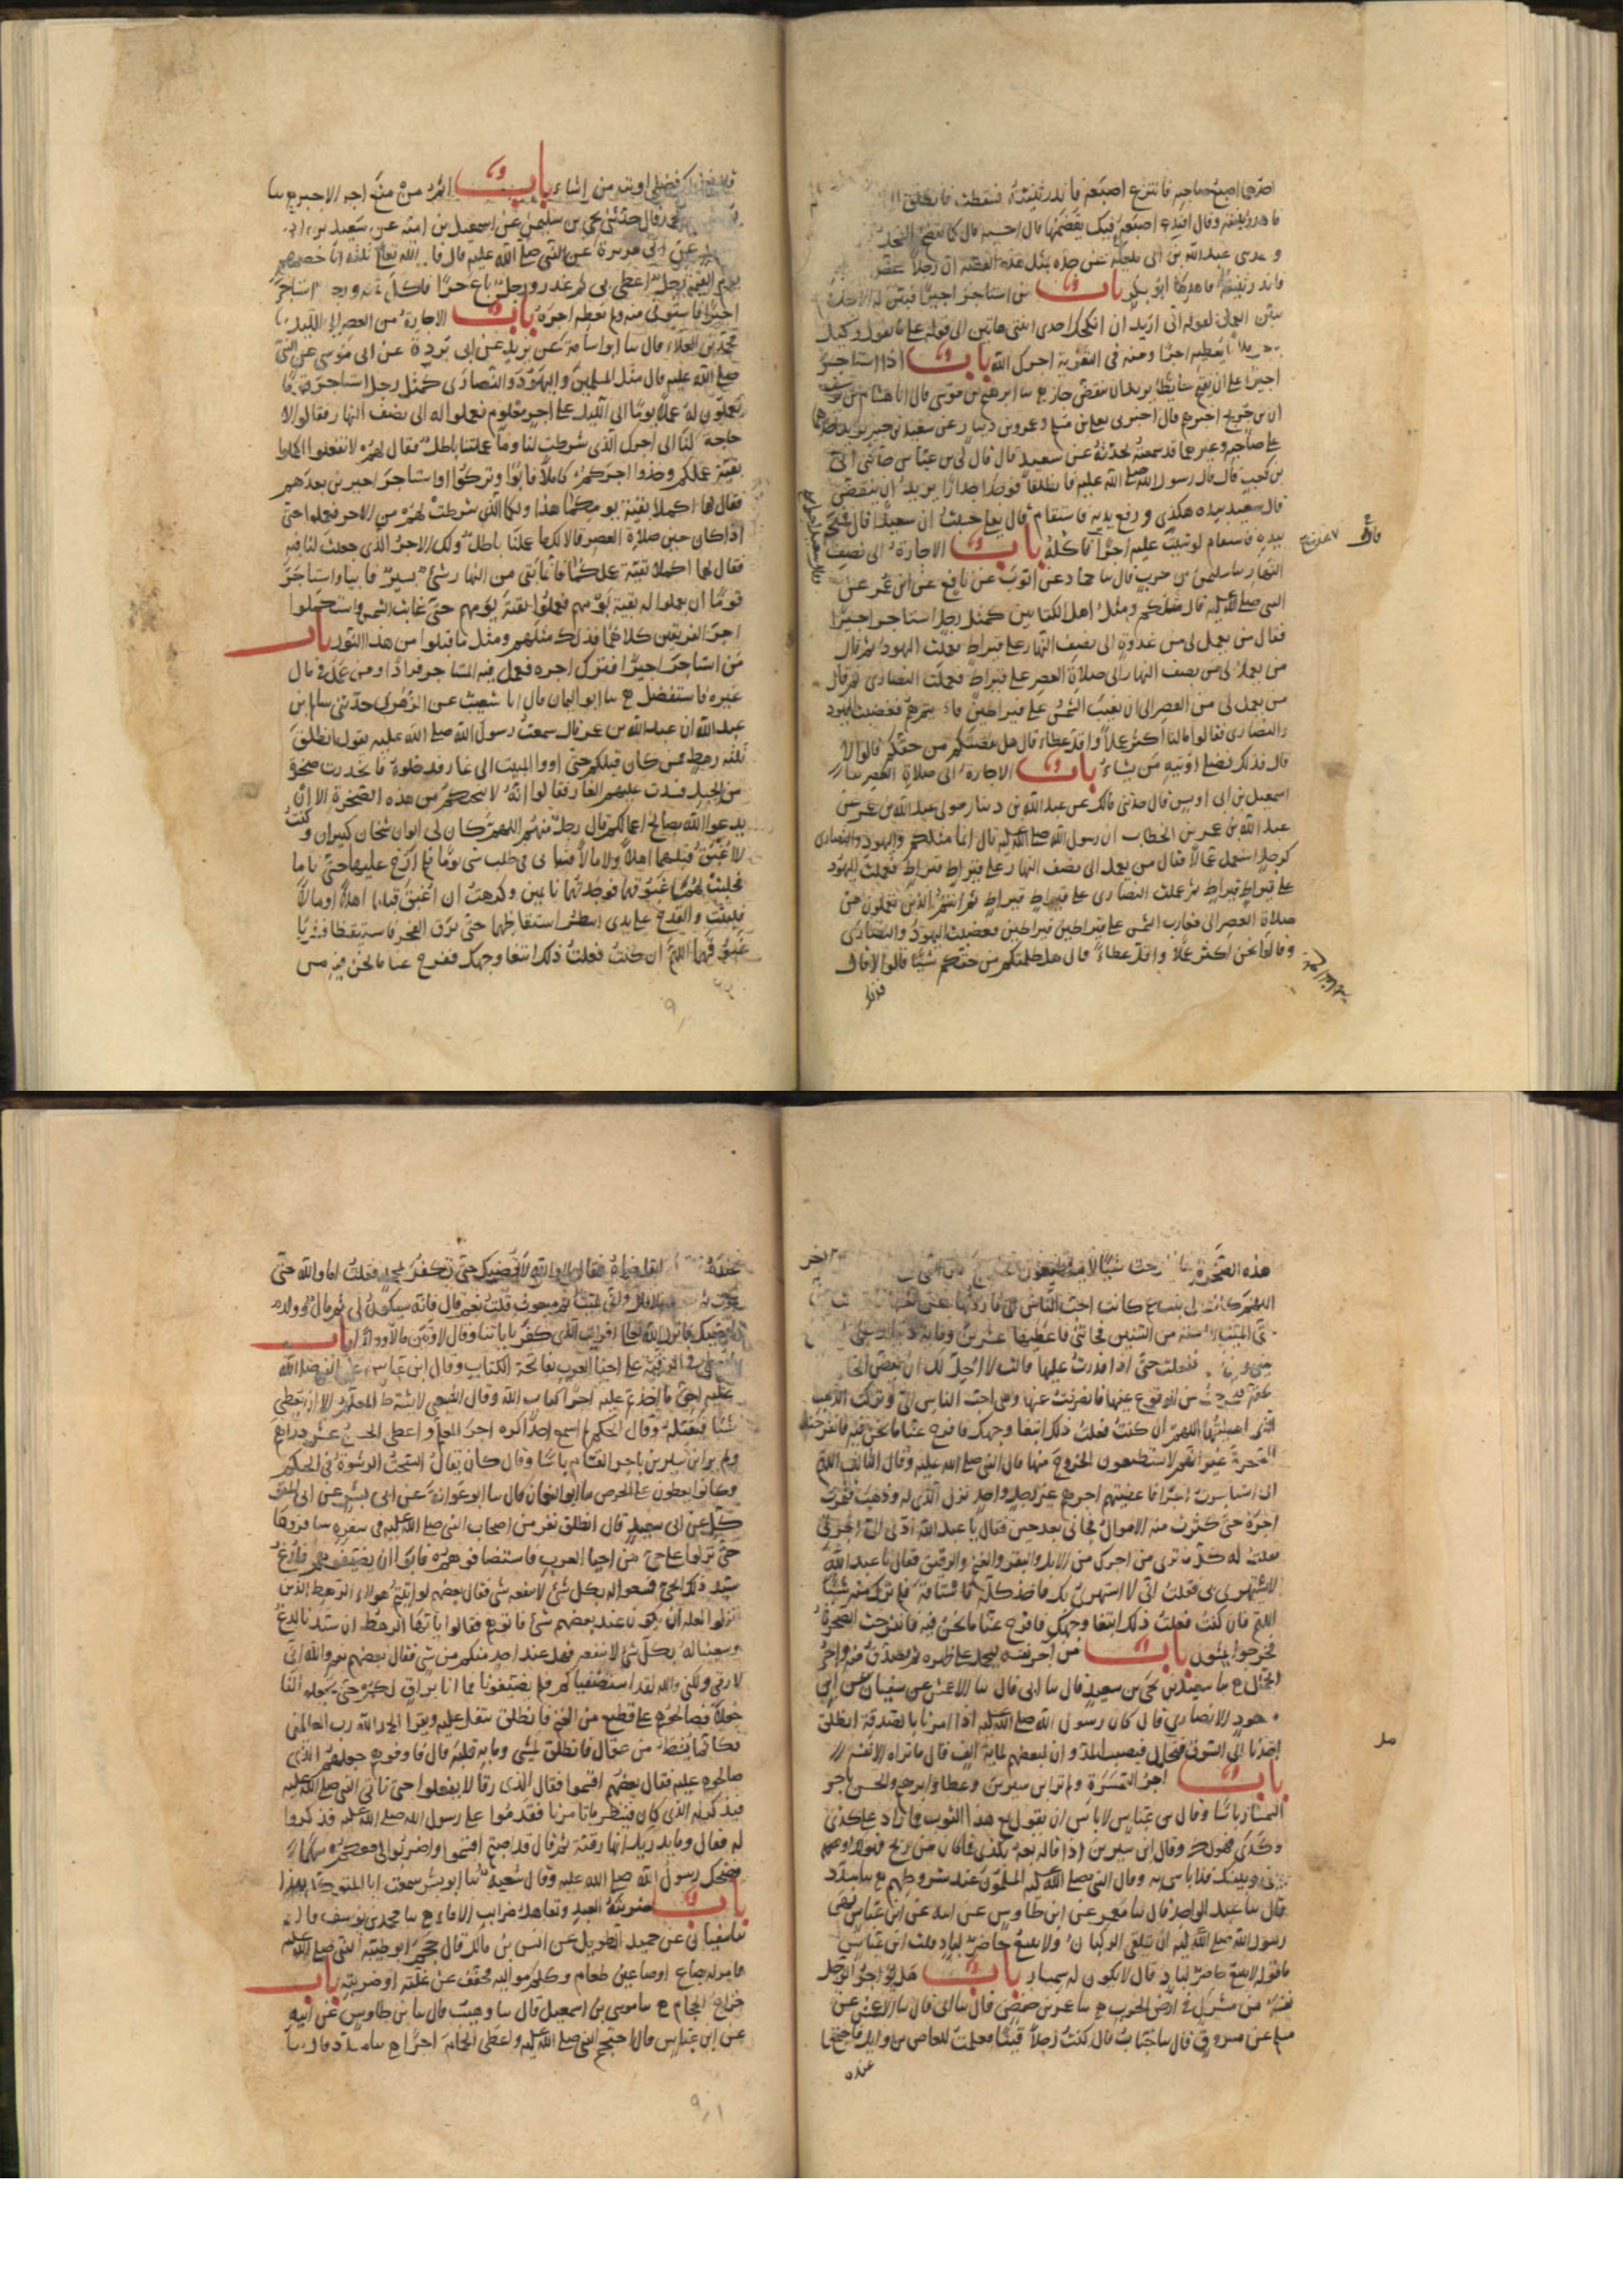 احدهما اصبع صاحبه فانتزع اصبعه فاندر ثنيته فسقطت فانطلق
فاهدر ثنيته وقال افيدع اصبعه في فيك تقضمها قال احسبه قال كما يقضم الفحل
و حدثني عبد الله بن ابى مليكة عن جده بمثل هذه القصة ان رجلا عض
فاندر ثنيته فاهدرها ابو بكر باب من استاجر اجيرا فبين له الاجل
يبين العمل لقوله انى اريد ان انكحك احدى ابنتى هاتين الى قوله على ما نقول وكيل
يعطيه اجرا ومنه فى التعزية اجرك الله باب اذا استاجر
اجيرا على ان يقيم حايطا يريد ان ينقض جاز ع سا ابرهيم بن موسى قال انا هشام بن يوسف
ان بن جريج اخبرهم قال اخبرنى يعلى بن مسلم وعمرو بن دينار عن سعيد بن جبير يزيد احدهما
على صاحبه وغيرهما قد سمعته يحدثه عن سعيد قال قال لى بن عباس حدثنى ابى
بن كعب قال قال رسول الله صلى الله عليه فانطلقا فوجدا جدارا يريد ان ينقض
قال سعيد بيده هكذى ورفع يديه فاستقام قال يعلى حسبت ان سعيدا قال فمسحه
بيده فاستقام لو شيت عليه اجرا نأكله باب الاجارة الى نصف
النهار سا سليمن بن حرب قال سا حماد عن ايوب عن نافع عن ابن عمر عن
النبى صلى الله عليه قال مثلكم ومثل اهل الكتابين كمثل رجل استاجر اجيرا
فقال من يعمل لى من غدوة الى نصف النهار على قيراط فعملت اليهود ثم قال
من يعمل لى من نصف النهار الى صلاة العصر على قيراط فعملت النصارى ثم قال
من يعمل لى من العصر الى ان تغيب الشمس على قيراطين فانتم هم فغضبت اليهود
والنصارى فقالوا ما لنا اكثر عملا واقل عطاء قال هل نقصتكم من حقكم قالوا لا
قال فذلك فضلى اوتيه من يشاء باب الاجارة الى صلاة العصر سا
اسمعيل بن ابى اويس قال حدثنى مالك عن عبد الله بن دينار مولى عبد الله بن عمر عن
عبد الله بن عمر بن الخطاب ان رسول الله صلى الله عليه قال انما مثلكم واليهود والنصارى
كرجل استعمل عمالا فقال من يعمل الى نصف النهار على قيراط قيراط فعملت اليهود
على قيراط قيراط ثم عملت النصارى على قيراط قيراط ثم انتم الذين تعملون من
صلاة العصر الى مغارب الشمس على قيراطين قيراطين فغضبت اليهود والنصارى
وقالوا نحن اكثر عملا واقل عطاء قال هل ظلمتكم من حقكم شيئا قالوا لا قال
فذلك
فذلك فضلى اوتيه من اشاء باب اثم من منع اجر الاجير ع سا
قال حدثنى يحيى بن سليمن عن اسمعيل بن امية عن سعيد بن ابى
عن ابى هريرة عن النبى صلى الله عليه قال قال الله تعالى ثلثة انا خصمهم
يوم القيمة رجل اعطى بى ثم غدر ورجل باع حرا فاكل ثمنه ورجل استاجر
اجيرا فاستوفى منه ولم يعطه اجره باب الاجارة من العصر الى الليل
محمد بن العلاء قال سا ابو اسامة عن بريد عن ابى بردة عن ابى موسى عن النبى
صلى الله عليه قال مثل المسلمين واليهود والنصارى كمثل رجل استاجر قوما
يعملون له عملا يوما الى الليل على اجر معلوم فعملوا له الى نصف النهار فقالوا لا
حاجة لنا الى اجرك الذى شرطت لنا وما عملنا باطل فقال لهم لا تفعلوا اكملوا
بقية عملكم وخذوا اجركم كاملا فابوا وتركوا واستاجر اجيرين بعدهم
فقال لهما اكملا بقية يومكما هذا ولكما الذى شرطت لهم من الاجر فعملوا حتى
اذا كان حين صلاة العصر قالا لك ما عملنا باطل ولك الاجر الذى جعلت لنا فيه
فقال لهما اكملا بقية عملكما فانما بقى من النهار شئ يسير فابيا واستاجر
قوما ان يعملوا له بقية يومهم فعملوا بقية يومهم حتى غابت الشمس واستكملوا
اجر الفريقين كلاهما فذلك مثلهم ومثل ما قبلوا من هذا النور باب
من استاجر اجيرا فترك اجره فعمل فيه المستاجر فزاد او من عمل فى مال
غيره فاستفضل ع سا ابو اليمان قال انا شعيب عن الزهرى حدثنى سالم بن
عبد الله ان عبد الله بن عمر قال سمعت رسول الله صلى الله عليه يقول انطلق
ثلثة رهط ممن كان قبلكم حتى اووا المبيت الى غار فدخلوه فانحدرت صخرة
من الجبل فسدت عليهم الغار فقالوا انه لا ينجيكم من هذه الصخرة الا ان
يدعوا الله بصالح اعمالكم قال رجل منهم اللهم كان لى ابوان شيخان كبيران وكنت
لا اغبق قبلهما اهلا ولا مالا فنأى بى فى طلب شئ يوما فلم ارح عليهما حتى ناما
فحلبت لهما غبوقهما فوجدتهما نايمين وكرهت ان اغبق قبلهما اهلا او مالا
فلبثت والقدح على يدى انتظر استيقاظهما حتى برق الفجر فاستيقظا فشربا
غبوقهما اللهم ان كنت فعلت ذلك ابتغا وجهك ففرج عنا ما نحن فيه من
هذه الصخرة فانفرجت شيئا لا يستطيعون الخروج قال النبى
اللهم كانت لى بنت عم كانت احب الناس الى فاردتها عن نفسها
حتى المت بها سنة من السنين فجاتنى فاعطيتها عشرين وماية دينار على
بينى وبين ففعلت حتى اذا قدرت عليها قالت لا احل لك ان تفض الخا
تحرجت من الوقوع عليها فانصرفت عنها وهى احب الناس الى وتركت الذهب
الذى اعطيتها اللهم ان كنت فعلت ذلك ابتغا وجهك فافرج عنا ما نحن فيه فانفرجت
الصخرة غير انهم لا يستطيعون الخروج منها قال النبى صلى الله عليه وقال الثالث اللهم
انى استاجرت اجرا فاعطيتهم اجرهم غير رجل واحد ترك الذى له وذهب فثمرت
اجره حتى كثرت منه الاموال فجانى بعد حين فقال يا عبد الله ادى الى اجرى
فقلت له كل ما ترى من اجرك من الابل والبقر والغنم والرقيق فقال يا عبد الله
لا تستهزى بى فقلت انى لا استهزئ بك فاخذ كله فاستاقه فلم يترك منه شيئا
اللهم فان كنت فعلت ذلك ابتغا وجهك فافرج عنا ما نحن فيه فانفرجت الصخرة
فخرجوا يمشون باب من اجر نفسه ليحمل على ظهره ثم يصدق منه واجر
الحمال ع سا سعيد بن يحيى بن سعيد قال سا ابى قال سا الاعمش عن شقيق عن ابى
مسعود الانصارى قال كان رسول الله صلى الله عليه اذا امرنا بالصدقة انطلق
احدنا الى السوق فتحامل فيصيب المد وان لبعضهم لماية الف قال ما نراه الا نفسه
باب اجر السمسرة ولم ير ابن سيرين وعطا وابرهيم والحسن باجر
السمسار باسا وقال بن عباس لا باس ان يقول بع هذا الثوب فما زاد على كذى
وكذى فهو لك وقال ابن سيرين اذا قال بعه بكذى فما كان من ربح فهو لك او هو
بينى وبينك فلا باس به وقال النبى صلى الله عليه المسلمون عند شروطهم ع سا مسدد
قال سا عبد الواحد قال سا معمر عن ابن طاوس عن ابيه عن ابن عباس نهى
رسول الله صلى الله عليه ان يتلقى الركبان ولا يبيع حاضر لباد قلت ابن عباس
ما قوله لا يبيع حاضر لباد قال لا يكون له سمسار باب هل يؤاجر الرجل
نفسه من مشرك فى ارض الحرب ع سا عمر بن حفص قال سا ابى قال سا الاعمش عن
مسلم عن مسروق قال سا خباب قال كنت رجلا قينا فعملت للعاص بن وايل فاجتمع لى
عنده
عنده فقال لا والله لا اقضيك حتى تكفر بمحمد فقلت اما والله حتى
تموت ثم تبعث فلا قال وانى لميت ثم مبعوث قلت نعم قال فانه سيكون لى ثم مال وولد
فاقضيك فانزل الله تعالى افرايت الذى كفر باياتنا وقال لاوتين مالا وولدا باب
ما يعطى فى الرقية على احيا العرب بفاتحة الكتاب وقال ابن عباس عن النبى صلى الله
عليه احق ما اخذتم عليه اجرا كتاب الله وقال الشعبى لا يشترط المعلم الا ان يعطى
شيئا فيقبله وقال الحكم لم اسمع احدا كره اجر المعلم واعطى الحسن عشرة دراهم
ولم ير ابن سيرين باجر القسام باسا وقال كان يقال السحت الرشوة فى الحكم
وكانوا يعطون على الخرص سا ابو النعمان قال سا ابو عوانة عن ابى بشر عن ابى المتوكل
عن ابى سعيد قال انطلق نفر من اصحاب النبى صلى الله عليه فى سفرة سافروها
حتى نزلوا على حى من احيا العرب فاستضافوهم فابوا ان يضيفوهم فلدغ
سيد ذلك الحى فسعوا له بكل شئ لا ينفعه شئ فقال بعضهم لو اتيتم هولاء الرهط الذين
نزلوا لعله ان يكون عند بعضهم شئ فاتوهم فقالوا يا ايها الرهط ان سيدنا لدغ
وسعينا له بكل شئ لا ينفعه فهل عند احد منكم من شئ فقال بعضهم نعم والله انى
لارقى ولكن والله لقد استضفناكم فلم تضيفونا فما انا براق لكم حتى تجعلوا لنا
جعلا فصالحوهم على قطيع من الغنم فانطلق يتفل عليه ويقرا الحمد لله رب العالمين
فكانما نشط من عقال فانطلق يمشى وما به قلبة قال فاوفوهم جعلهم الذى
صالحوهم عليه فقال بعضهم اقسموا فقال الذى رقا لا تفعلوا حتى ناتى النبى صلى الله عليه
فنذكر له الذى كان فننظر ما يامرنا فقدموا على رسول الله صلى الله عليه فذكروا
له فقال وما يدريك انها رقية ثم قال قد اصبتم اقسموا واضربوا لى معكم سهما
فضحك رسول الله صلى الله عليه وقال شعبة سا ابو بشر سمعت ابا المتوكل بهذا
باب ضريبة العبد وتعاهد ضرايب الاماء ع سا محمد بن يوسف قال
سا سفيان عن حميد الطويل عن انس بن مالك قال حجم ابو طيبة النبى صلى الله عليه
فامر له بصاع او صاعين طعام وكلم مواليه فخفف عن غلته او ضريبته باب
خراج الحجام ع سا موسى بن اسمعيل قال سا وهيب قال سا بن طاوس عن ابيه
عن ابن عباس قال احتجم النبى صلى الله عليه واعطى الحجام اجرا ع سا مسدد قال سا